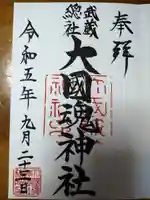 奉拝
武蔵
総社
大國魂神社
令和五年九月二十三日